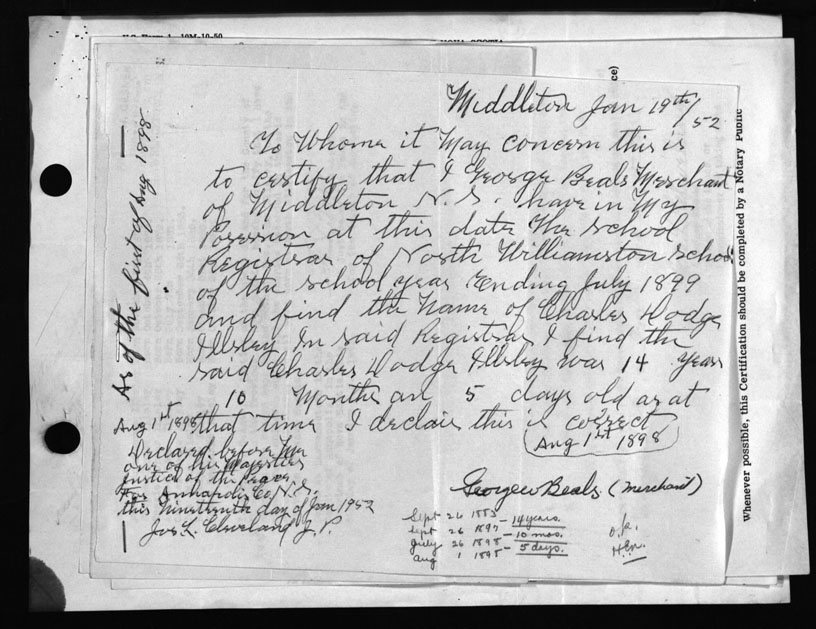 U.S. Form 1 10M-10-50
Middleton Jan 19th/52
To Whome it May Concern this is
to certify that I George Beals Merchant
of Middleton N.S. have in My
Posession at this date the School
Registrar of North Williamston School
of the school year Ending July 1899
and find the Name of Charles Dodge
Illsley In said Registrar I find the
said Charles Dodge Illsley was 14 years
10 Months an 5 days old as at
Aug 1st 1898 that time I declair this is correct
(Aug 1st 1898)
Declared before Me
one of his Majesties
Justice of the Peace
For Annapolis Co, N.S.
this Nineteenth day of Jan 1952
Jos L. Cleveland J.P.
George w Beals. (Merchant)
Sept 26 1883
Sept 26 1897 - 14 years.
July 26 1898 - 10 mos.
Aug 1 1898 - 5 days.
o.k.
As of the first of Aug 1898
ce)
Whenever possible, this Certification should be completed by a Notary Public